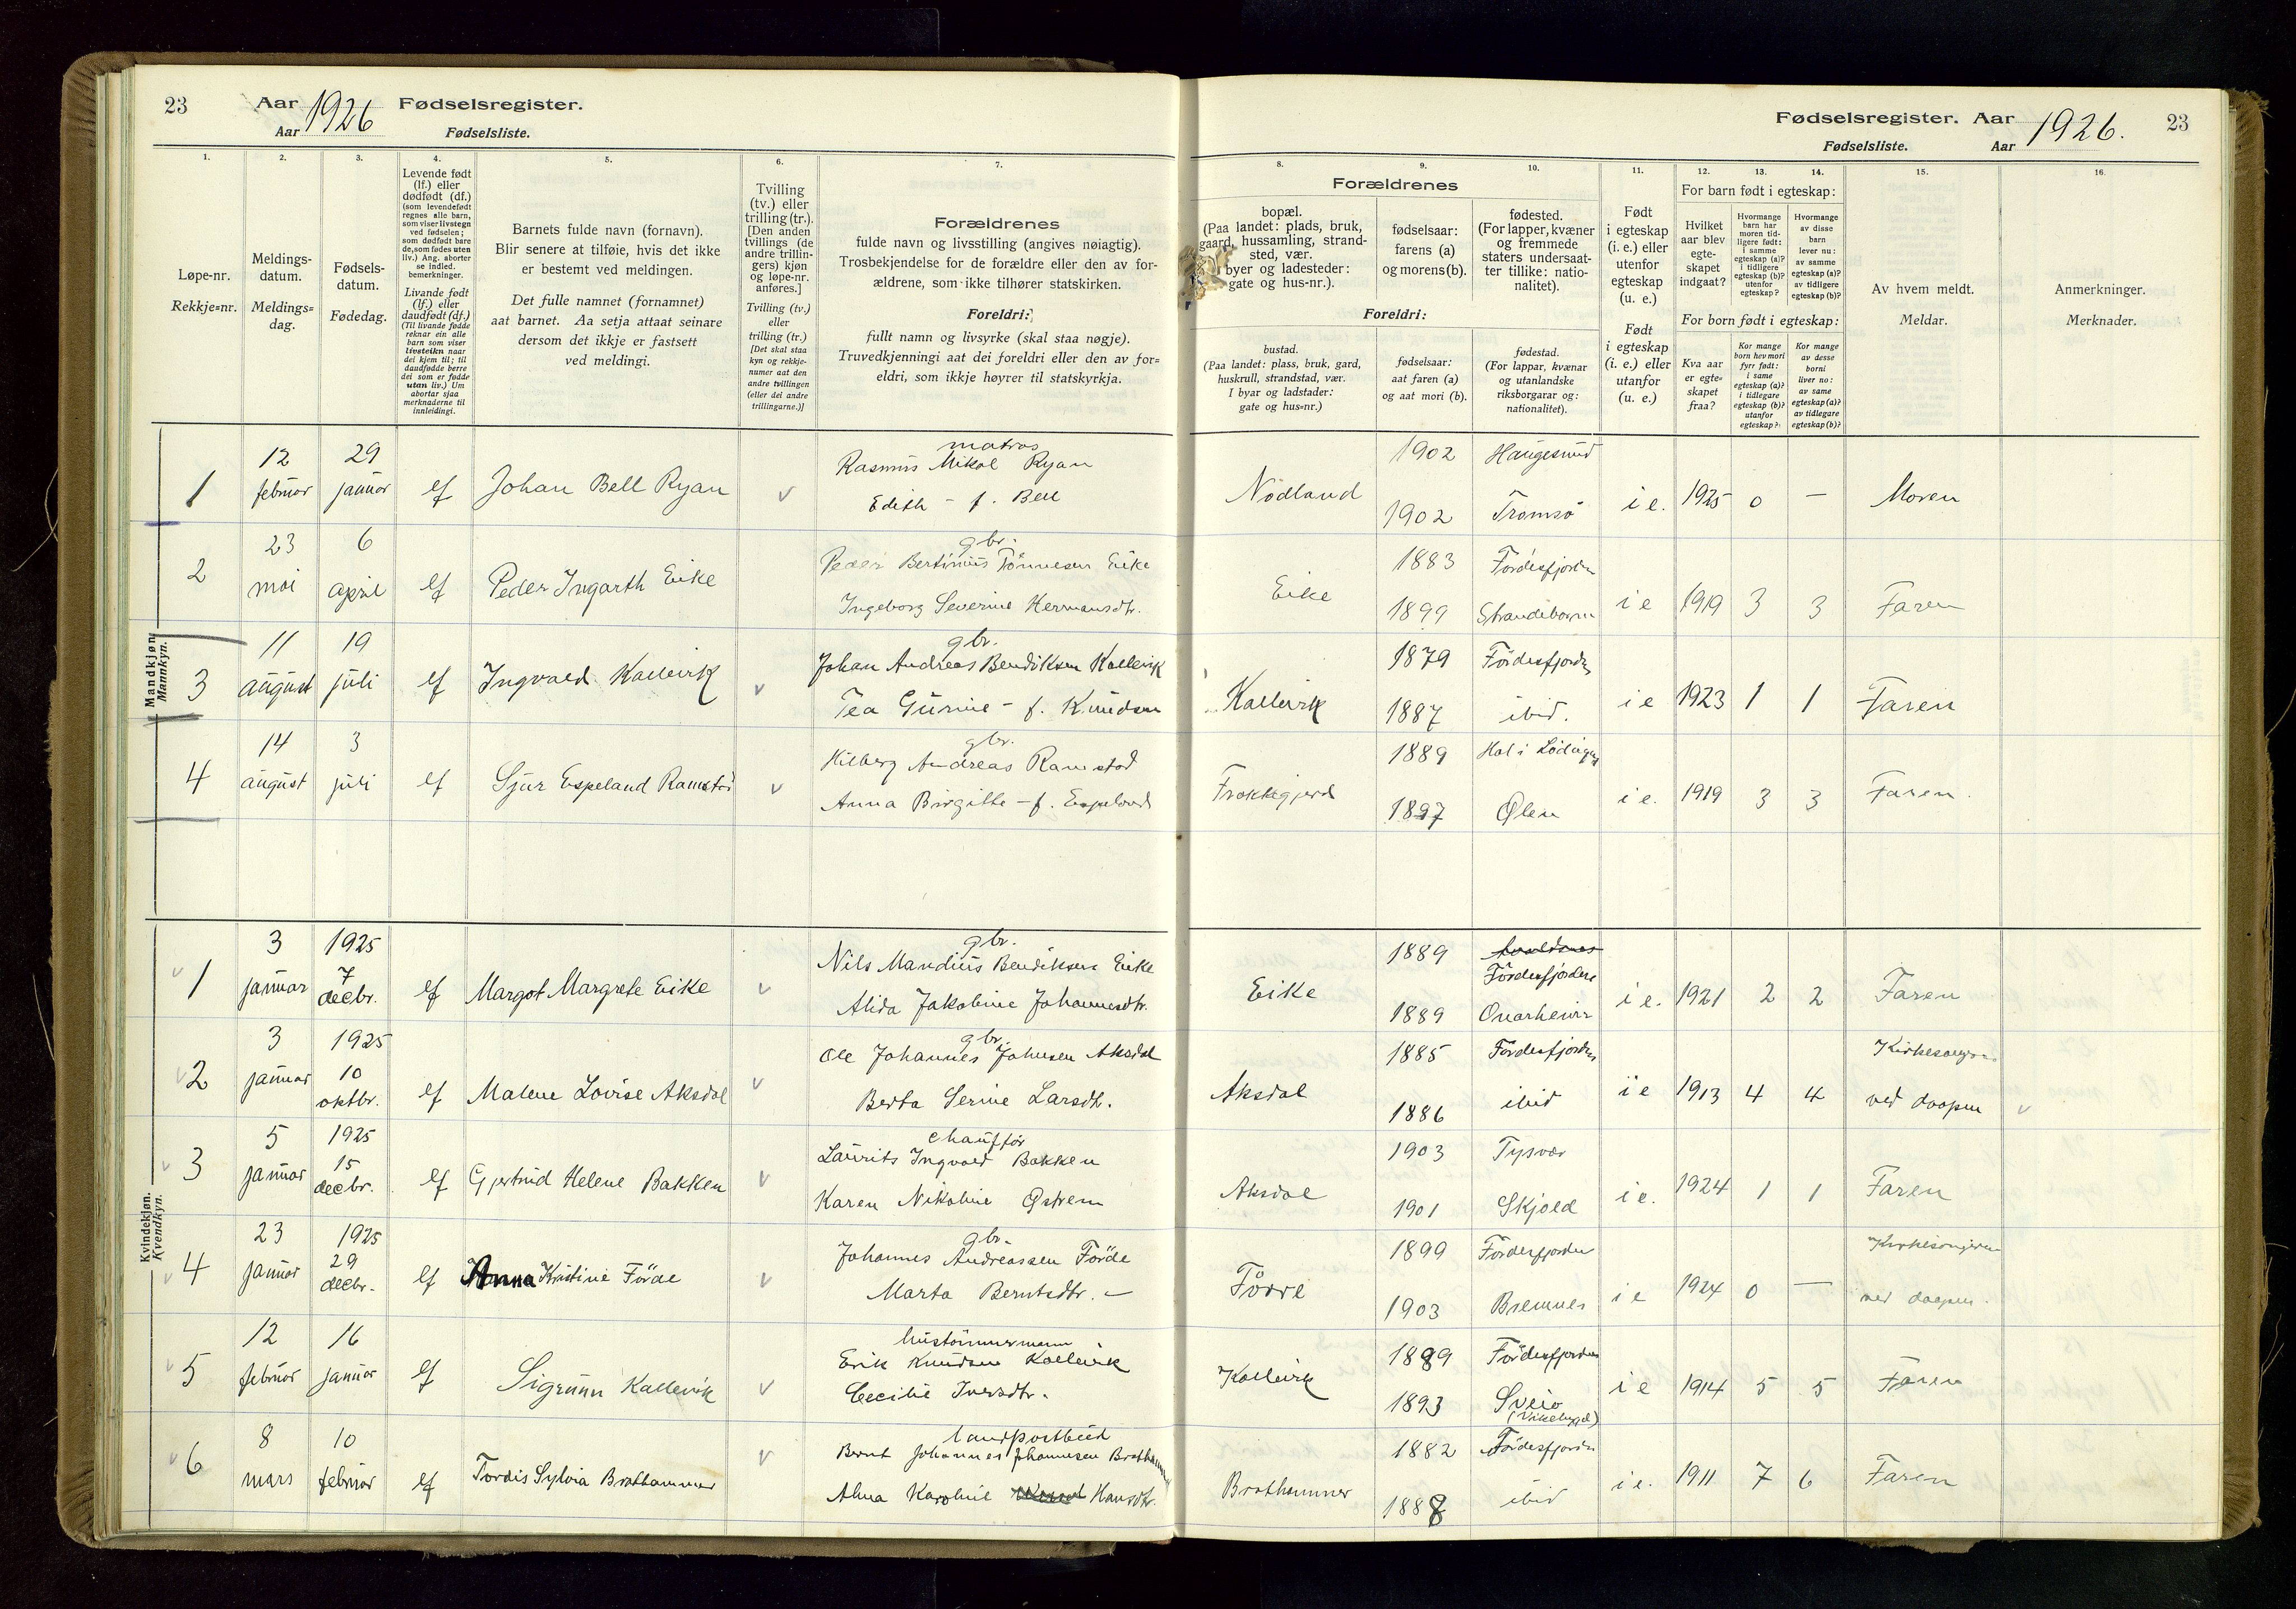 23 Aar 1926 Fødselsregister.
Aar Fødselsliste.
Fødselsregister. Aar 1926. 23
Fødselsliste. Aar
1. 2. 3. 4. 5. 6. 7.
8. 9. 10. 11. 12. 13. 14. 15. 16.
Løpe-nr.
Rekkje=nr.
Meldings-
datum.
Meldings=
dag.
Fødsels-
datum.
Fødedag.
Levende født
(lf.) eller
dødfødt (df.)
(som levendefødt
regnes alle barn,
som viser livstegn
ved fødselen;
som dødfødt bare
de, som fødes uten
liv.) Ang. aborter
se indled.
bemerkninger.
Livande født
(lf.) eller
daudfødt (df.)
(Til livande fødde
reknar ein alle
barn som viser
livsteikn naar
dei kjem til; til
daudfødde berre
dei som er fødde
utan liv.) Um
abortar sjaa
merknaderne til
innleidingi.
Barnets fulde navn (fornavn).
Blir senere at tilføie, hvis det ikke
er bestemt ved meldingen.
Det fulle namnet (fornamnet)
aat barnet. Aa setja attaat seinare
dersom det ikkje er fastsett
ved meldingi.
Tvilling
(tv.) eller
trilling (tr.).
[Den anden
tvillings (de
andre trillin-
gers) kjøn
og løpe-nr.
anføres.]
Tvilling (tv.)
eller
trilling (tr.)
[Det skal staa
kyn og rekkje-
numer aat den
andre tvillingen
(eller dei andre
trillingarne.)]
Forældrenes
fulde navn og livsstilling (angives nøiagtig).
Trosbekjendelse for de forældre eller den av for-
ældrene, som ikke tilhører statskirken.
Foreldri:
fullt namn og livsyrke (skal staa nøgje).
Truvedkjenningi aat dei foreldri eller den av for=
eldri, som ikkje høyrer til statskyrkja.
Forældrenes
bopæl.
(Paa landet: plads, bruk,
gaard, hussamling, strand-
sted, vær.
I byer og ladesteder:
gate og hus-nr.).
fødselsaar:
farens (a)
og morens (b).
fødested.
(For lapper, kvæner
og fremmede
staters undersaat-
ter tillike: natio-
nalitet).
Foreldri:
bustad.
(Paa landet: plass, bruk, gard,
huskrull, strandstad, vær.
I byar og ladstader:
gate og hus=nr.)
fødselsaar:
aat faren (a)
og aat mori (b).
fødestad.
(For lappar, kvænar
og utanlandske
riksborgarar og:
nationalitet).
Født
i egteskap
(i. e.) eller
utenfor
egteskap
(u. e.)
Født
i egteskap
(i. e.) eller
utanfor
(u. e.)
For barn født i egteskap:
Hvilket
aar blev
egte-
skapet
indgaat?
Hvormange
barn har
moren tid-
ligere født:
i samme
egteskap (a)?
i tidligere
egteskap (b)?
utenfor
egteskap?
Hvormange
av disse
barn
lever nu:
av samme
egteskap (a)?
av tidligere
egteskap (b)?
For born født i egteskap:
Kva aar
er egte-
skapet
fraa?
Kor mange
born hev mori
fyrr født:
i same
egteskap (a)?
i tidlegare
egteskap (b)?
utanfor
egteskap?
Kor mange
av desse
borni
liver no:
av same
egteskap (a)?
av tidlegare
egteskap (b)?
Av hvem meldt.
Meldar.
Anmerkninger.
Merknader.
Mandkjøn.
Mannkyn.
1 12 februar 29 januar lf Johan Bell Ryan matros
Rasmus Mikal Ryan
Edith - f. Bell
Nødland 1902 Haugesund
1902 Tromsø i e. 1925 0 — Moren
2 23 mai 6 april lf Peder Ingarth Eike gbr.
Peder Bertinius Tønnesen Eike
Ingeborg Severine Hermansdtr.
Eike 1883 Førdesfjorden
1899 i e 1919 3 3 Faren
3 11 august 19 juli lf Ingvald Kallevik gbr.
Johan Andreas Bendiksen Kallevik
Tea Gurine - f. Knudsen
Kallevik 1879 Førdesfjorden
1887 ibid. i e 1923 1 1 Faren
4 14 august 3 juli lf Sjur Espeland Ramstad gbr.
Hilberg Andreas Ramstad
Anna Birgitte - f. Espeland
Frakkagjerd 1889 Hol i Lødingen
1897 Ølen i e. 1919 3 3 Faren.
Kvindekjøn.
Kvendkyn.
1 3 januar 1925 7 decbr. lf Margot Margrete Eike gbr.
Nils Mandius Bendiksen Eike
Alida Jakobine Johannesdtr.
Eike 1889 Avaldsnes Førdesfjorden
1889 Ovarheim i e. 1921 2 2 Faren
2 3 januar 1925 10 oktbr. lf Malene Lovise Aksdal gbr.
Ole Johannes Johnsen Aksdal
Berta Serine Larsdtr.
Aksdal 1885 Førdesfjorden
1886 ibid i e 1913 4 4 Kirkesangeren
ved daapen
3 5 januar 1925 15 decbr. lf Gjertrud Helene Bakken chauffør
Laurits Ingvald Bakken
Karen Nikoline Østrem
Aksdal 1903 Tysvær
1901 Skjold i e. 1924 1 1 Faren
4 23 januar 1925 29 decbr. lf Anna Kristine Førde gbr.
Johannes Andreassen Førde
Marta Berntsdtr. —
Førre 1899 Førdesfjorden
1903 Bremnes i e 1924 0 — Kirkesangeren
ved daapen.
5 12 februar 16 januar lf Sigrunn Kallevik hustømmermann
Erik Knudsen Kallevik
Cecilie Iversdtr.
Kallevik 1889 Førdesfjorden
1893 Sveio
(Vikebygd) i e 1914 5 5 Faren
6 8 mars 10 februar lf Tordis Sylvia Brathammer landpostbud
Bernt Johannes Johannesen Brathammer
Alma Karoline Hansdtr.
Brathammer 1882 Førdesfjorden
1888 ibid i e. 1911 7 6 Faren